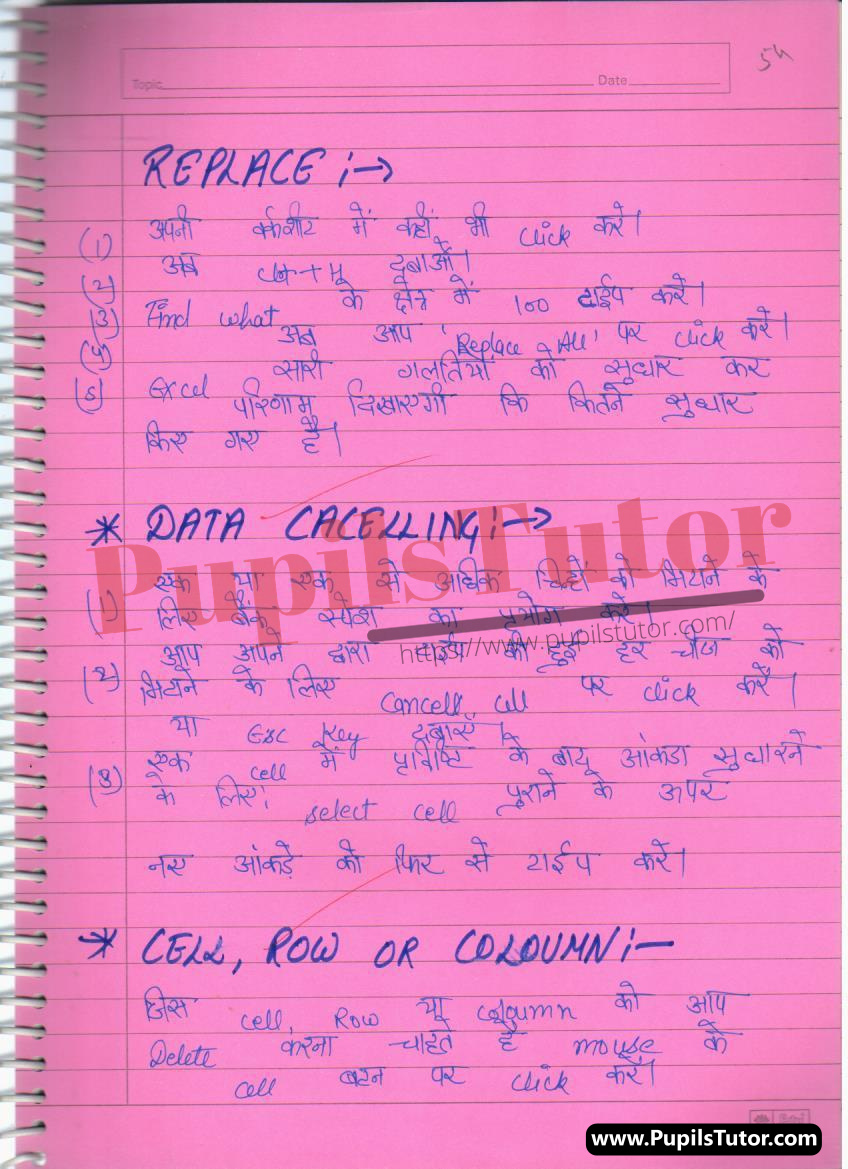 54
Topic Date
REPLACE :→
(1) अपनी वर्कशीट में कहीं भी click करे।
(2) अब ctrl+H दबाओ।
(3) Find what के क्षेत्र में 100 टाईप करें।
(4) अब आप 'Replace All' पर click करे।
(5) Excel सारी गलतियों को सुधार कर
परिणाम दिखाएगी कि कितने सुधार
किए गए है।
* DATA CACELLING :→
(1) एक या एक से अधिक चिन्हों को मिटाने के
लिए बैक स्पेश का प्रयोग करे।
(2) आप अपने द्वारा टाईप की हुई हर चीज को
मिटाने के लिए Cancell cell पर click करें।
या Esc key दबाएं।
(3) एक cell में प्रविष्टि के बाद आंकडा सुधारने
के लिए, select cell पुराने के ऊपर
नए आंकड़े को फिर से टाईप करें।
* CELL, ROW OR COLOUMN :—
जिस cell, Row या coloumn को आप
Delete करना चाहते है mouse के
cell बटन पर click करें।
PupilsTutor
https://www.pupilstutor.com/
www.PupilsTutor.com